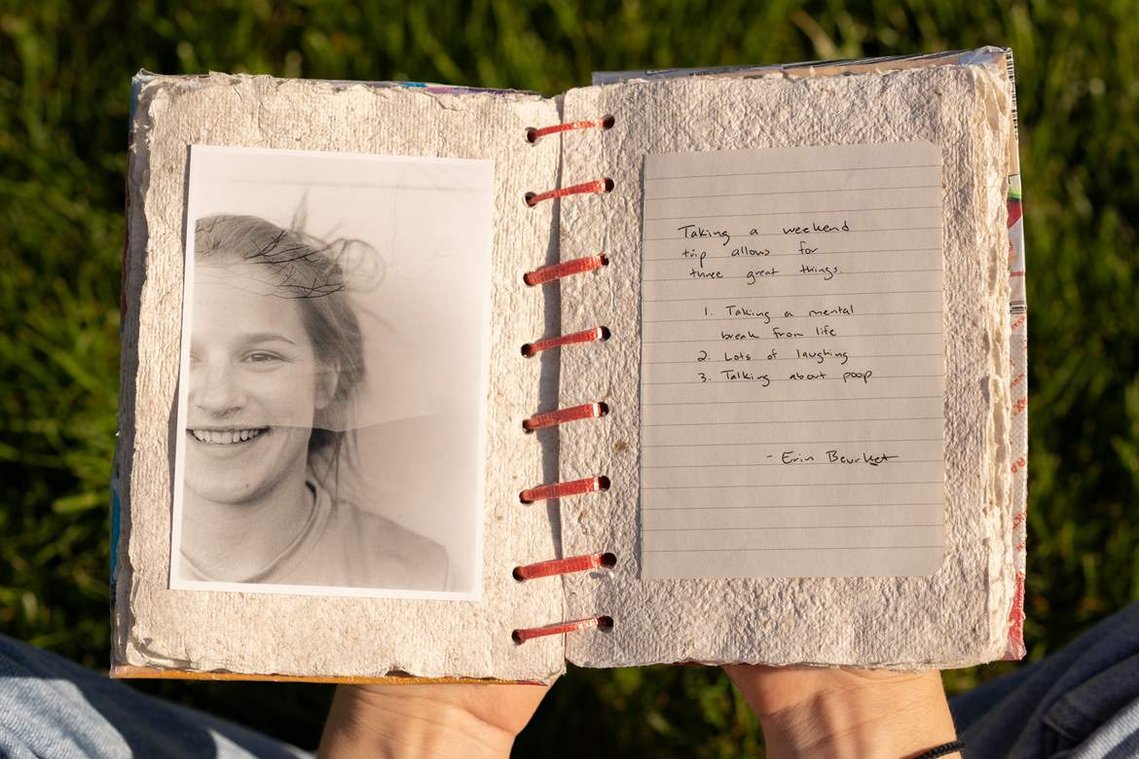 Taking a weekend
trip allows for
three great things.
1. Taking a mental
break from life
2. Lots of laughing
3. Talking about poop
- Erin Beurket